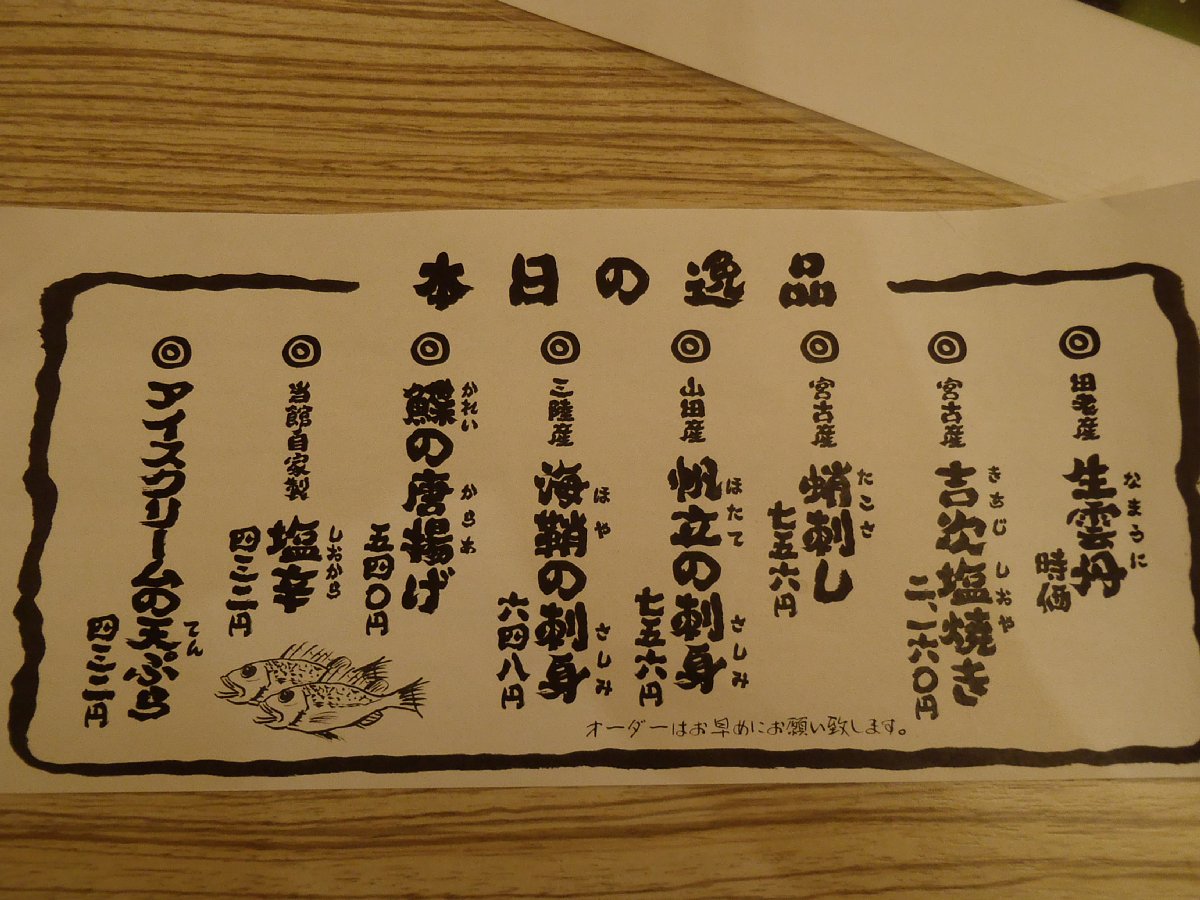 本日の逸品
◎田老産 生雲丹
なまうに
時価
◎宮古産 吉次塩焼き
きちじ しおや
二、一六〇円
◎宮古産 蛸刺し
たこさ
七五六円
◎山田産 帆立の刺身
ほたて さしみ
七五六円
◎三陸産 海鞘の刺身
ほや さしみ
六四八円
◎鰈の唐揚げ
かれい からあ
五四〇円
◎当館自家製 塩辛
しおから
四三二円
◎アイスクリームの天ぷら
てん
四三二円
オーダーはお早めにお願い致します。